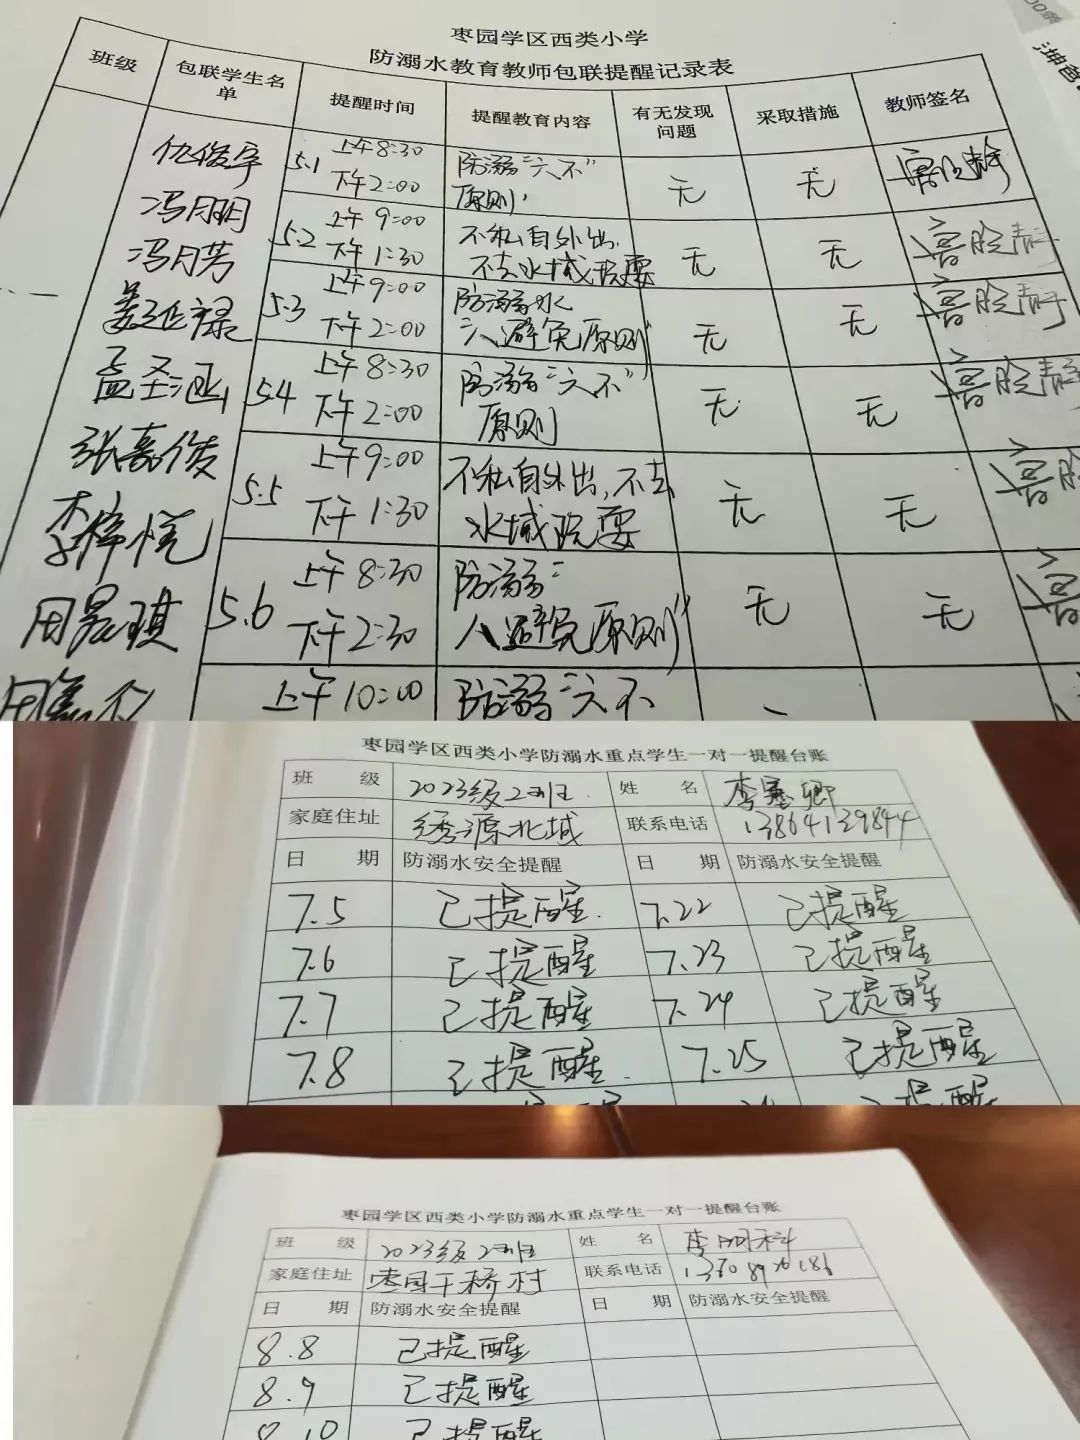 枣园学区西类小学
防溺水教育教师包联提醒记录表
班级 包联学生名单 提醒时间 提醒教育内容 有无发现问题 采取措施 教师签名
仇俊宇
冯月明
冯月芳
姜延禄
孟圣涵
张嘉俊
李梓悦
5.1 上午8:30 下午2:00 防溺“六不”原则, 无 无
5.2 上午9:00 下午1:30 不私自外出, 不去水域玩耍 无 无
5.3 上午9:00 下午2:00 防溺水“八避免原则” 无 无
5.4 上午8:30 下午2:00 防溺“六不”原则 无 无
5.5 上午9:00 下午1:30 不私自外出,不去水域玩耍 无 无
5.6 上午8:30 下午2:30 防溺“八避免原则” 无 无
上午10:00 防溺“六不
枣园学区西类小学防溺水重点学生一对一提醒台账
班 级 2023级2班 姓 名
家庭住址 绣源北城 联系电话 13864139844
日 期 防溺水安全提醒 日 期 防溺水安全提醒
7.5 已提醒. 7.22 已提醒
7.6 已提醒 7.23 已提醒
7.7 已提醒 7.24 已提醒
7.8 已提醒. 7.25 已提醒
枣园学区西类小学防溺水重点学生一对一提醒台账
班 级 2023级2班 姓 名 李明科
家庭住址 枣园干桥村 联系电话
日 期 防溺水安全提醒 日 期 防溺水安全提醒
8.8 已提醒
8.9 已提醒
8.10 已提醒